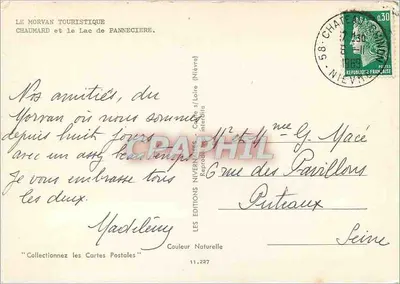 LE MORVAN TOURISTIQUE
CHAUMARD et le Lac de PANNECIERE.
0,30
58 - CHATEAU-CHINON
1969
NIEVRE
REPUBLIQUE FRANÇAISE
Nos amitiés, du
Morvan où nous sommes
depuis huit jours
avec un assez beau temps
Je vous embrasse tous
les deux.
Madilémy
CPAPHIL
LES EDITIONS NIVERNAISES
Reproduction interdite
Mr et Mme G. Macé
6 rue des Pavillons
Puteaux
Seine
Couleur Naturelle
"Collectionnez les Cartes Postales"
11.287